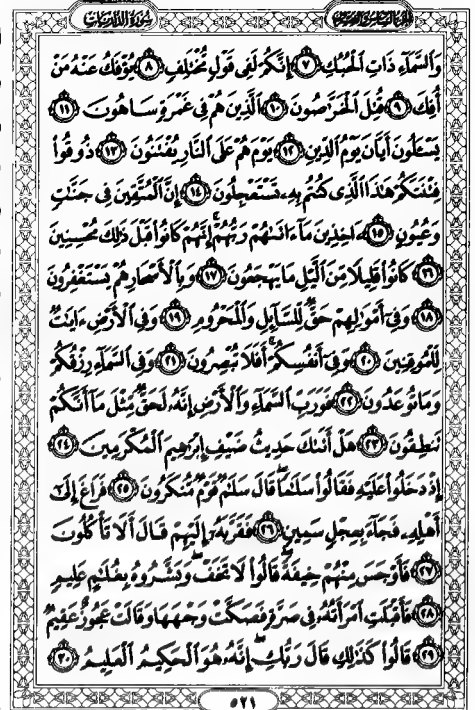 الجزء السادس والعشرون سورة الذاريات
وَٱلسَّمَآءِ ذَاتِ ٱلْحُبُكِ ٧ إِنَّكُمْ لَفِى قَوْلٍ مُّخْتَلِفٍ ٨ يُؤْفَكُ عَنْهُ مَنْ
أُفِكَ ٩ قُتِلَ ٱلْخَرَّٰصُونَ ١٠ ٱلَّذِينَ هُمْ فِى غَمْرَةٍ سَاهُونَ ١١
يَسْـَٔلُونَ أَيَّانَ يَوْمُ ٱلدِّينِ ١٢ يَوْمَ هُمْ عَلَى ٱلنَّارِ يُفْتَنُونَ ١٣ ذُوقُوا۟
فِتْنَتَكُمْ هَٰذَا ٱلَّذِى كُنتُم بِهِۦ تَسْتَعْجِلُونَ ١٤ إِنَّ ٱلْمُتَّقِينَ فِى جَنَّٰتٍ
وَعُيُونٍ ١٥ ءَاخِذِينَ مَآ ءَاتَىٰهُمْ رَبُّهُمْ ۚ إِنَّهُمْ كَانُوا۟ قَبْلَ ذَٰلِكَ مُحْسِنِينَ
١٦ كَانُوا۟ قَلِيلًا مِّنَ ٱلَّيْلِ مَا يَهْجَعُونَ ١٧ وَبِٱلْأَسْحَارِ هُمْ يَسْتَغْفِرُونَ
١٨ وَفِىٓ أَمْوَٰلِهِمْ حَقٌّ لِّلسَّآئِلِ وَٱلْمَحْرُومِ ١٩ وَفِى ٱلْأَرْضِ ءَايَٰتٌ
لِّلْمُوقِنِينَ ٢٠ وَفِىٓ أَنفُسِكُمْ ۚ أَفَلَا تُبْصِرُونَ ٢١ وَفِى ٱلسَّمَآءِ رِزْقُكُمْ
وَمَا تُوعَدُونَ ٢٢ فَوَرَبِّ ٱلسَّمَآءِ وَٱلْأَرْضِ إِنَّهُۥ لَحَقٌّ مِّثْلَ مَآ أَنَّكُمْ
تَنطِقُونَ ٢٣ هَلْ أَتَىٰكَ حَدِيثُ ضَيْفِ إِبْرَٰهِيمَ ٱلْمُكْرَمِينَ ٢٤
إِذْ دَخَلُوا۟ عَلَيْهِ فَقَالُوا۟ سَلَٰمًا ۖ قَالَ سَلَٰمٌ قَوْمٌ مُّنكَرُونَ ٢٥ فَرَاغَ إِلَىٰٓ
أَهْلِهِۦ فَجَآءَ بِعِجْلٍ سَمِينٍ ٢٦ فَقَرَّبَهُۥٓ إِلَيْهِمْ قَالَ أَلَا تَأْكُلُونَ
٢٧ فَأَوْجَسَ مِنْهُمْ خِيفَةً ۖ قَالُوا۟ لَا تَخَفْ ۖ وَبَشَّرُوهُ بِغُلَٰمٍ عَلِيمٍ
٢٨ فَأَقْبَلَتِ ٱمْرَأَتُهُۥ فِى صَرَّةٍ فَصَكَّتْ وَجْهَهَا وَقَالَتْ عَجُوزٌ عَقِيمٌ
٢٩ قَالُوا۟ كَذَٰلِكِ قَالَ رَبُّكِ ۖ إِنَّهُۥ هُوَ ٱلْحَكِيمُ ٱلْعَلِيمُ ٣٠
٥٢١